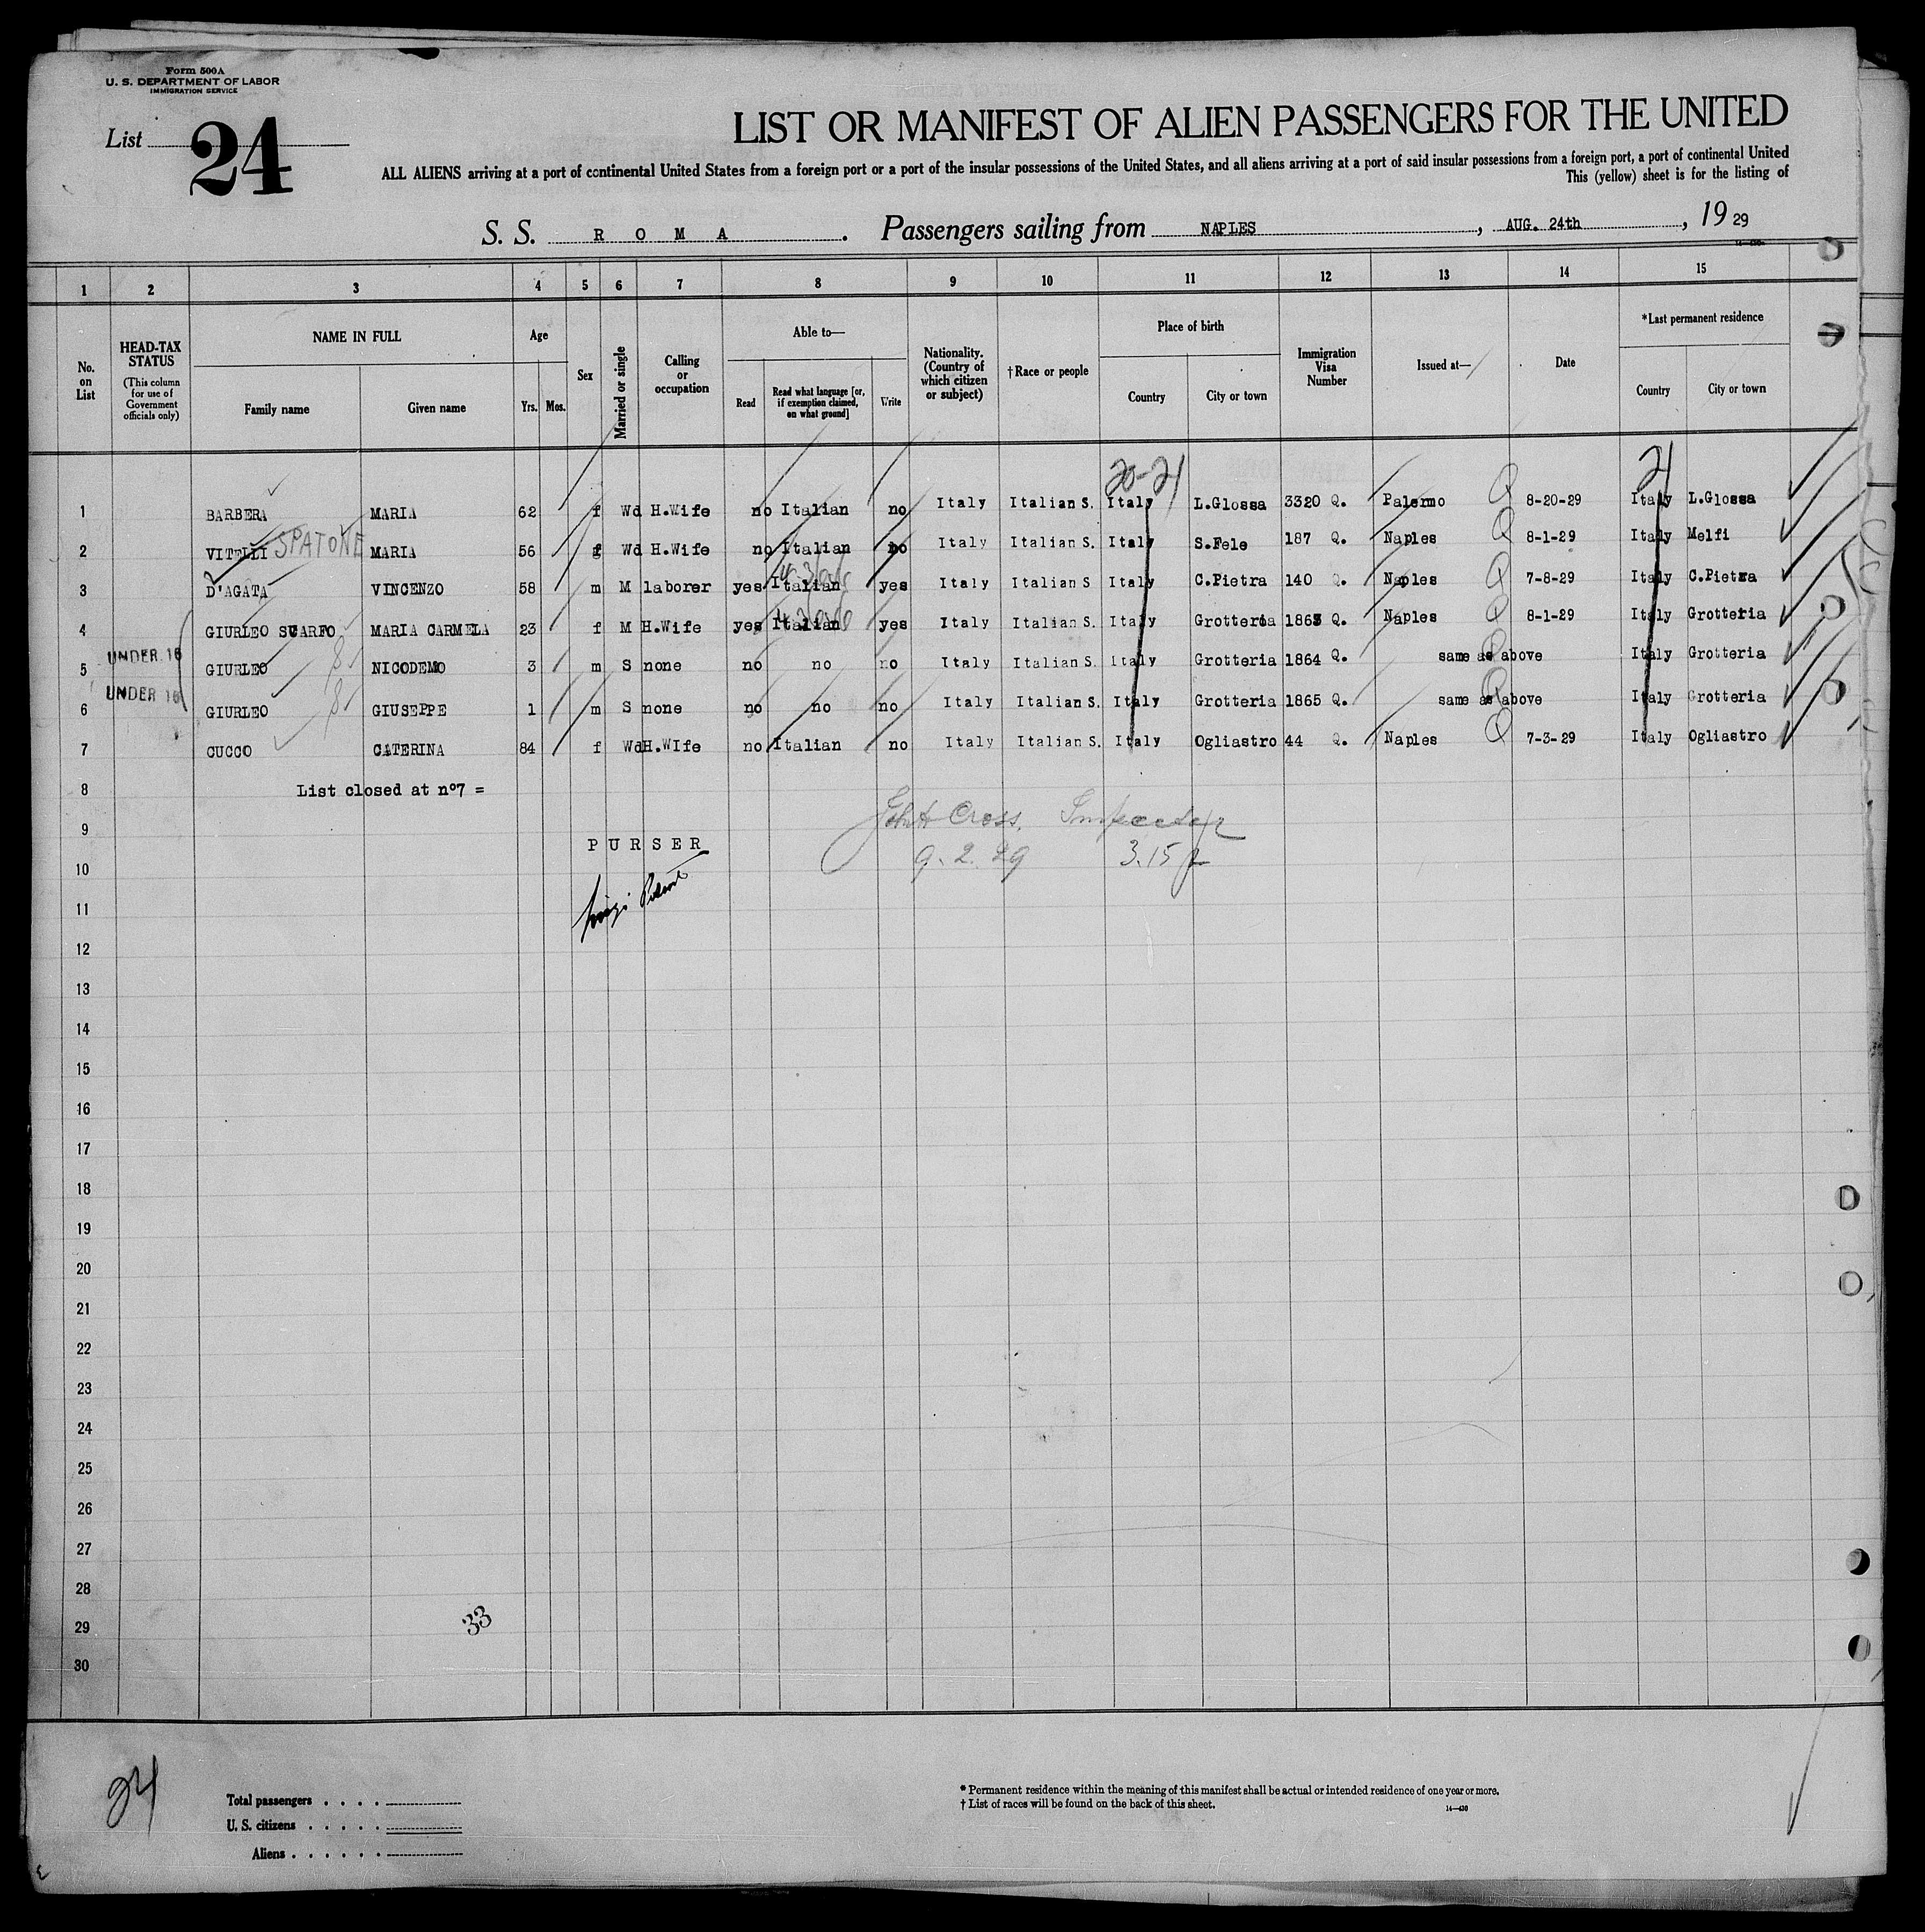 Form 500A
U. S. DEPARTMENT OF LABOR
IMMIGRATION SERVICE
List 24
LIST OR MANIFEST OF ALIEN PASSENGERS FOR THE UNITED
ALL ALIENS arriving at a port of continental United States from a foreign port or a port of the insular possessions of the United States, and all aliens arriving at a port of said insular possessions from a foreign port, a port of continental United
This (yellow) sheet is for the listing of
S. S. ROMA. Passengers sailing from NAPLES, AUG. 24th, 1929
1 2 3 4 5 6 7 8 9 10 11 12 13 14 15
No. on List
HEAD-TAX STATUS (This column for use of Government officials only)
NAME IN FULL
Family name
Given name
Age
Yrs. Mos.
Sex
Married or single
Calling or occupation
Able to—
Read
Read what language [or, if exemption claimed, on what ground]
Write
Nationality. (Country of which citizen or subject)
†Race or people
Place of birth
Country
City or town
Immigration Visa Number
Issued at—
Date
*Last permanent residence
Country
City or town
20-21 21
1 BARBERA MARIA 62 f Wd H.Wife no Italian no Italy Italian S. Italy L.Glossa 3320 Q. Palermo Q 8-20-29 Italy L.Glossa
2 VITELLI SPATONE MARIA 56 f Wd H.Wife no Italian no Italy Italian S. Italy S.Fele 187 Q. Naples Q 8-1-29 Italy Melfi
3 D'AGATA VINCENZO 58 m M laborer yes Italian yes Italy Italian S Italy C.Pietra 140 Q. Naples Q 7-8-29 Italy C.Pietra
4 GIURLEO SCARFO MARIA CARMELA 23 f M H.Wife yes Italian yes Italy Italian S. Italy Grotteria 1863 Q. Naples Q 8-1-29 Italy Grotteria
UNDER 16
5 GIURLEO NICODEMO 3 m S none no no no Italy Italian S. Italy Grotteria 1864 Q. same as above Q Italy Grotteria
UNDER 16
6 GIURLEO GIUSEPPE 1 m S none no no no Italy Italian S. Italy Grotteria 1865 Q. same as above Q Italy Grotteria
7 CUCCO CATERINA 84 f Wd H.WIfe no Italian no Italy Italian S. Italy Ogliastro 44 Q. Naples Q 7-3-29 Italy Ogliastro
8 List closed at nº7 =
John H Cross, Inspector
9
PURSER
9. 2. 29 3.15 p
10
11
12
13
14
15
16
17
18
19
20
21
22
23
24
25
26
27
28
29 33
30
24
Total passengers . . . .
U. S. citizens . . . . .
Aliens . . . . . .
* Permanent residence within the meaning of this manifest shall be actual or intended residence of one year or more.
† List of races will be found on the back of this sheet.
14—430